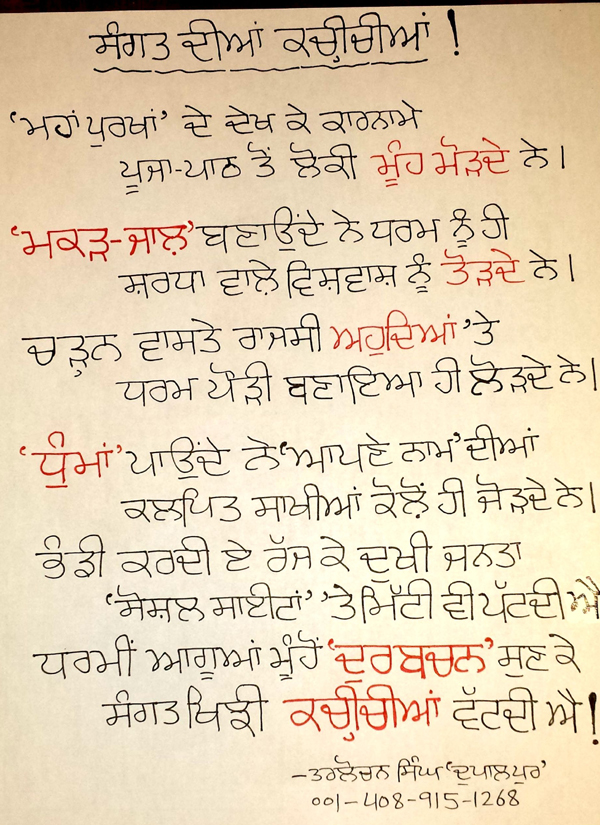 ਸੰਗਤ ਦੀਆਂ ਕਚੀਚੀਆਂ !
‘ਮਹਾਂ ਪੁਰਖਾਂ’ ਦੇ ਦੇਖ ਕੇ ਕਾਰਨਾਮੇ
ਪੂਜਾ-ਪਾਠ ਤੋਂ ਲੋਕੀ ਮੂੰਹ ਮੋੜਦੇ ਨੇ।
‘ਮਕੜ-ਜਾਲ਼’ ਬਣਾਉਂਦੇ ਨੇ ਧਰਮ ਨੂੰ ਹੀ
ਸ਼ਰਧਾ ਵਾਲ਼ੇ ਵਿਸ਼ਵਾਸ਼ ਨੂੰ ਤੋੜਦੇ ਨੇ।
ਚੜ੍ਹਨ ਵਾਸਤੇ ਰਾਜਸੀ ਅਹੁਦਿਆਂ ’ਤੇ
ਧਰਮ ਪੌੜੀ ਬਣਾਇਆ ਹੀ ਲੋੜਦੇ ਨੇ।
‘ਧੁੰਮਾਂ’ ਪਾਉਂਦੇ ਨੇ ‘ਆਪਣੇ ਨਾਮ’ ਦੀਆਂ
ਕਲਪਿਤ ਸਾਖੀਆਂ ਕੋਲੋਂ ਹੀ ਜੋੜਦੇ ਨੇ।
ਭੰਡੀ ਕਰਦੀ ਏ ਰੱਜ ਕੇ ਦੁਖੀ ਜਨਤਾ
‘ਸੋਸ਼ਲ ਸਾਈਟਾਂ’ ’ਤੇ ਮਿੱਟੀ ਵੀ ਪੱਟਦੀ ਐ
ਧਰਮੀਂ ਆਗੂਆਂ ਮੂੰਹੋਂ ‘ਦੁਰਬਚਨ’ ਸੁਣ ਕੇ
ਸੰਗਤ ਖਿਝੀ ਕਚੀਚੀਆਂ ਵੱਟਦੀ ਐ!
-ਤਰਲੋਚਨ ਸਿੰਘ ‘ਦੁਪਾਲਪੁਰ’
001-408-915-1268